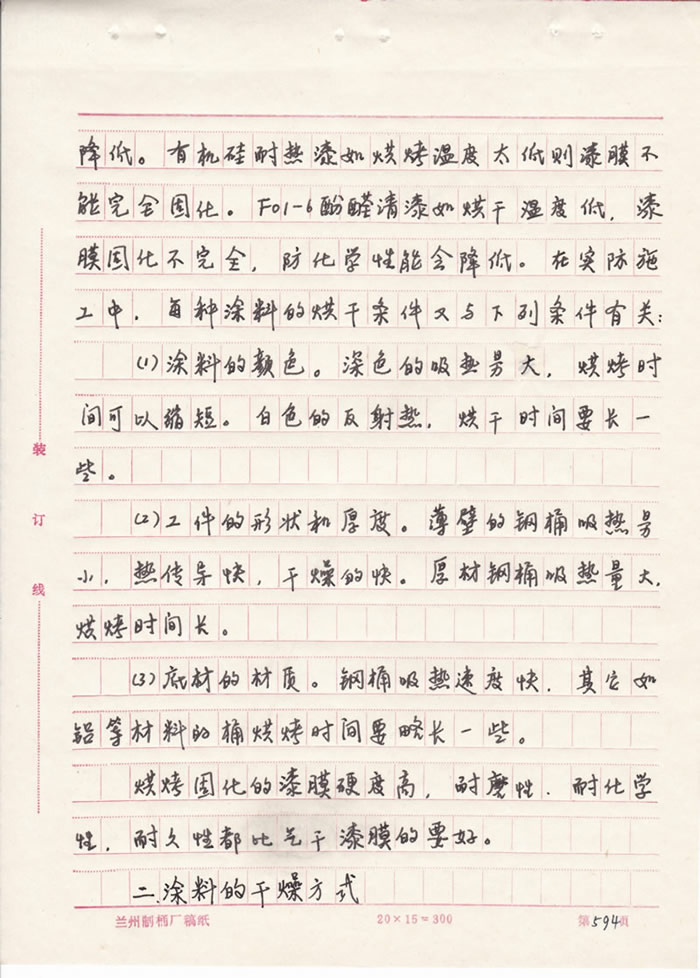 降低。有机硅耐热漆如烘烤温度太低则漆膜不
能完全固化。F01-6酚醛清漆如烘干温度低，漆
膜固化不完全，防化学性能会降低。在实际施
工中，每种涂料的烘干条件又与下列条件有关：
(1)涂料的颜色。深色的吸热量大，烘烤时
间可以缩短。白色的反射热，烘干时间要长一
些。
(2)工件的形状和厚度。薄壁的钢桶吸热量
小，热传导快，干燥的快。厚材钢桶吸热量大，
烘烤时间长。
(3)底材的材质。钢桶吸热速度快，其它如
铝等材料的桶烘烤时间要略长一些。
烘烤固化的漆膜硬度高，耐磨性．耐化学
性，耐久性都比气干漆膜的要好。
二．涂料的干燥方式
装
订
线
兰州制桶厂稿纸 20×15=300 第594页